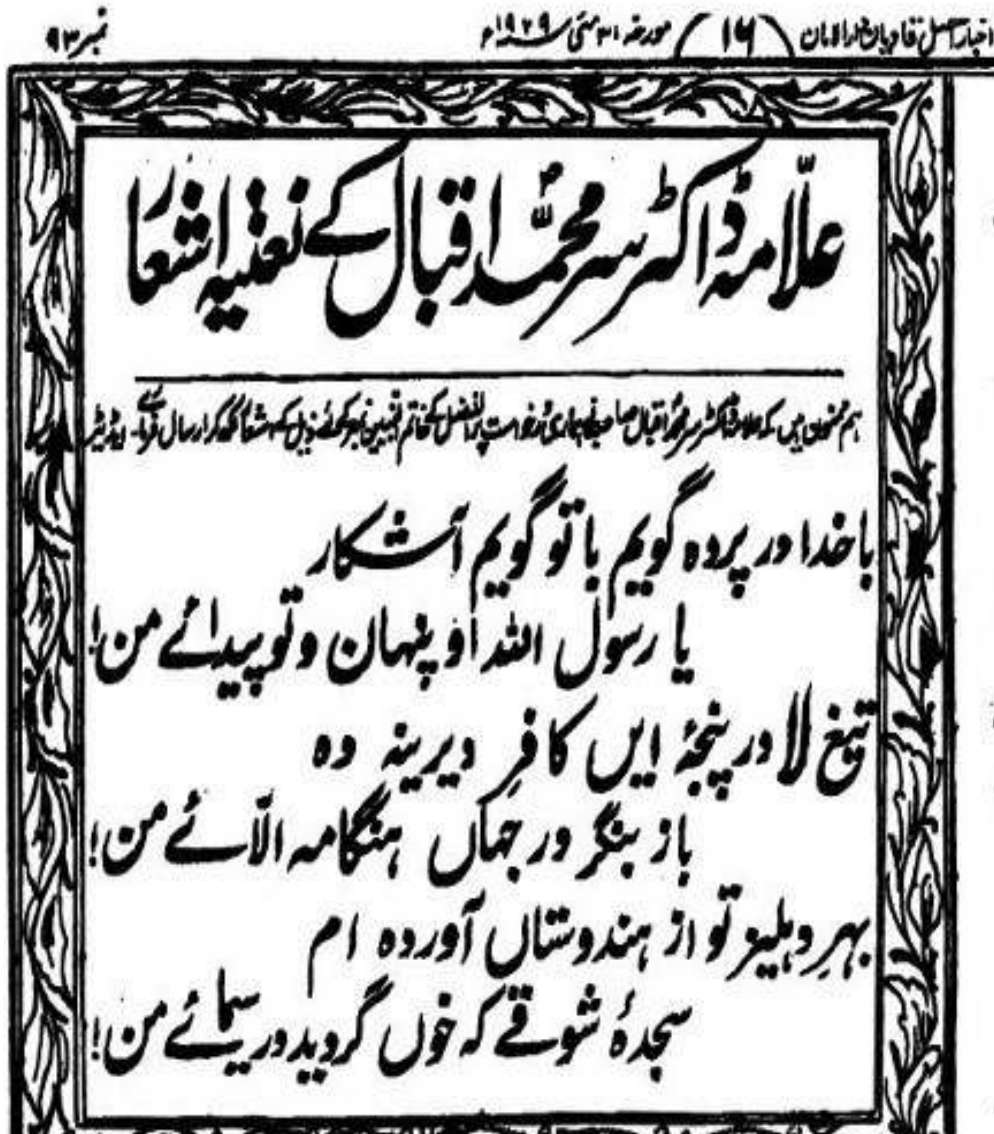 اخبار الفضل قادیان دارالامان (۱۶) مورخہ ۳۱ مئی ۱۹۲۹ء نمبر ۹۳
علّامہ ڈاکٹر سر محمدؐ اقبال کے نعتیہ اشعار
ہم ممنون ہیں کہ علامہ ڈاکٹر سر محمدؐ اقبال صاحب نے ہماری درخواست پر الفضل کے خاتم النبیین نمبر کے لئے ذیل کے اشعار لکھ کر ارسال فرمائے۔ ایڈیٹر
با خدا در پردہ گویم با تو گویم آشکار
یا رسول اللہ او پنہان و تو پیدائے من!
تیغ لا در پنجۂ ایں کافرِ دیرینہ دہ
باز بنگر در جہاں ہنگامہ الّائے من!
بہرِ دہلیز تو از ہندوستاں آوردہ ام
سجدۂ شوقے کہ خوں گردید در سیمائے من!